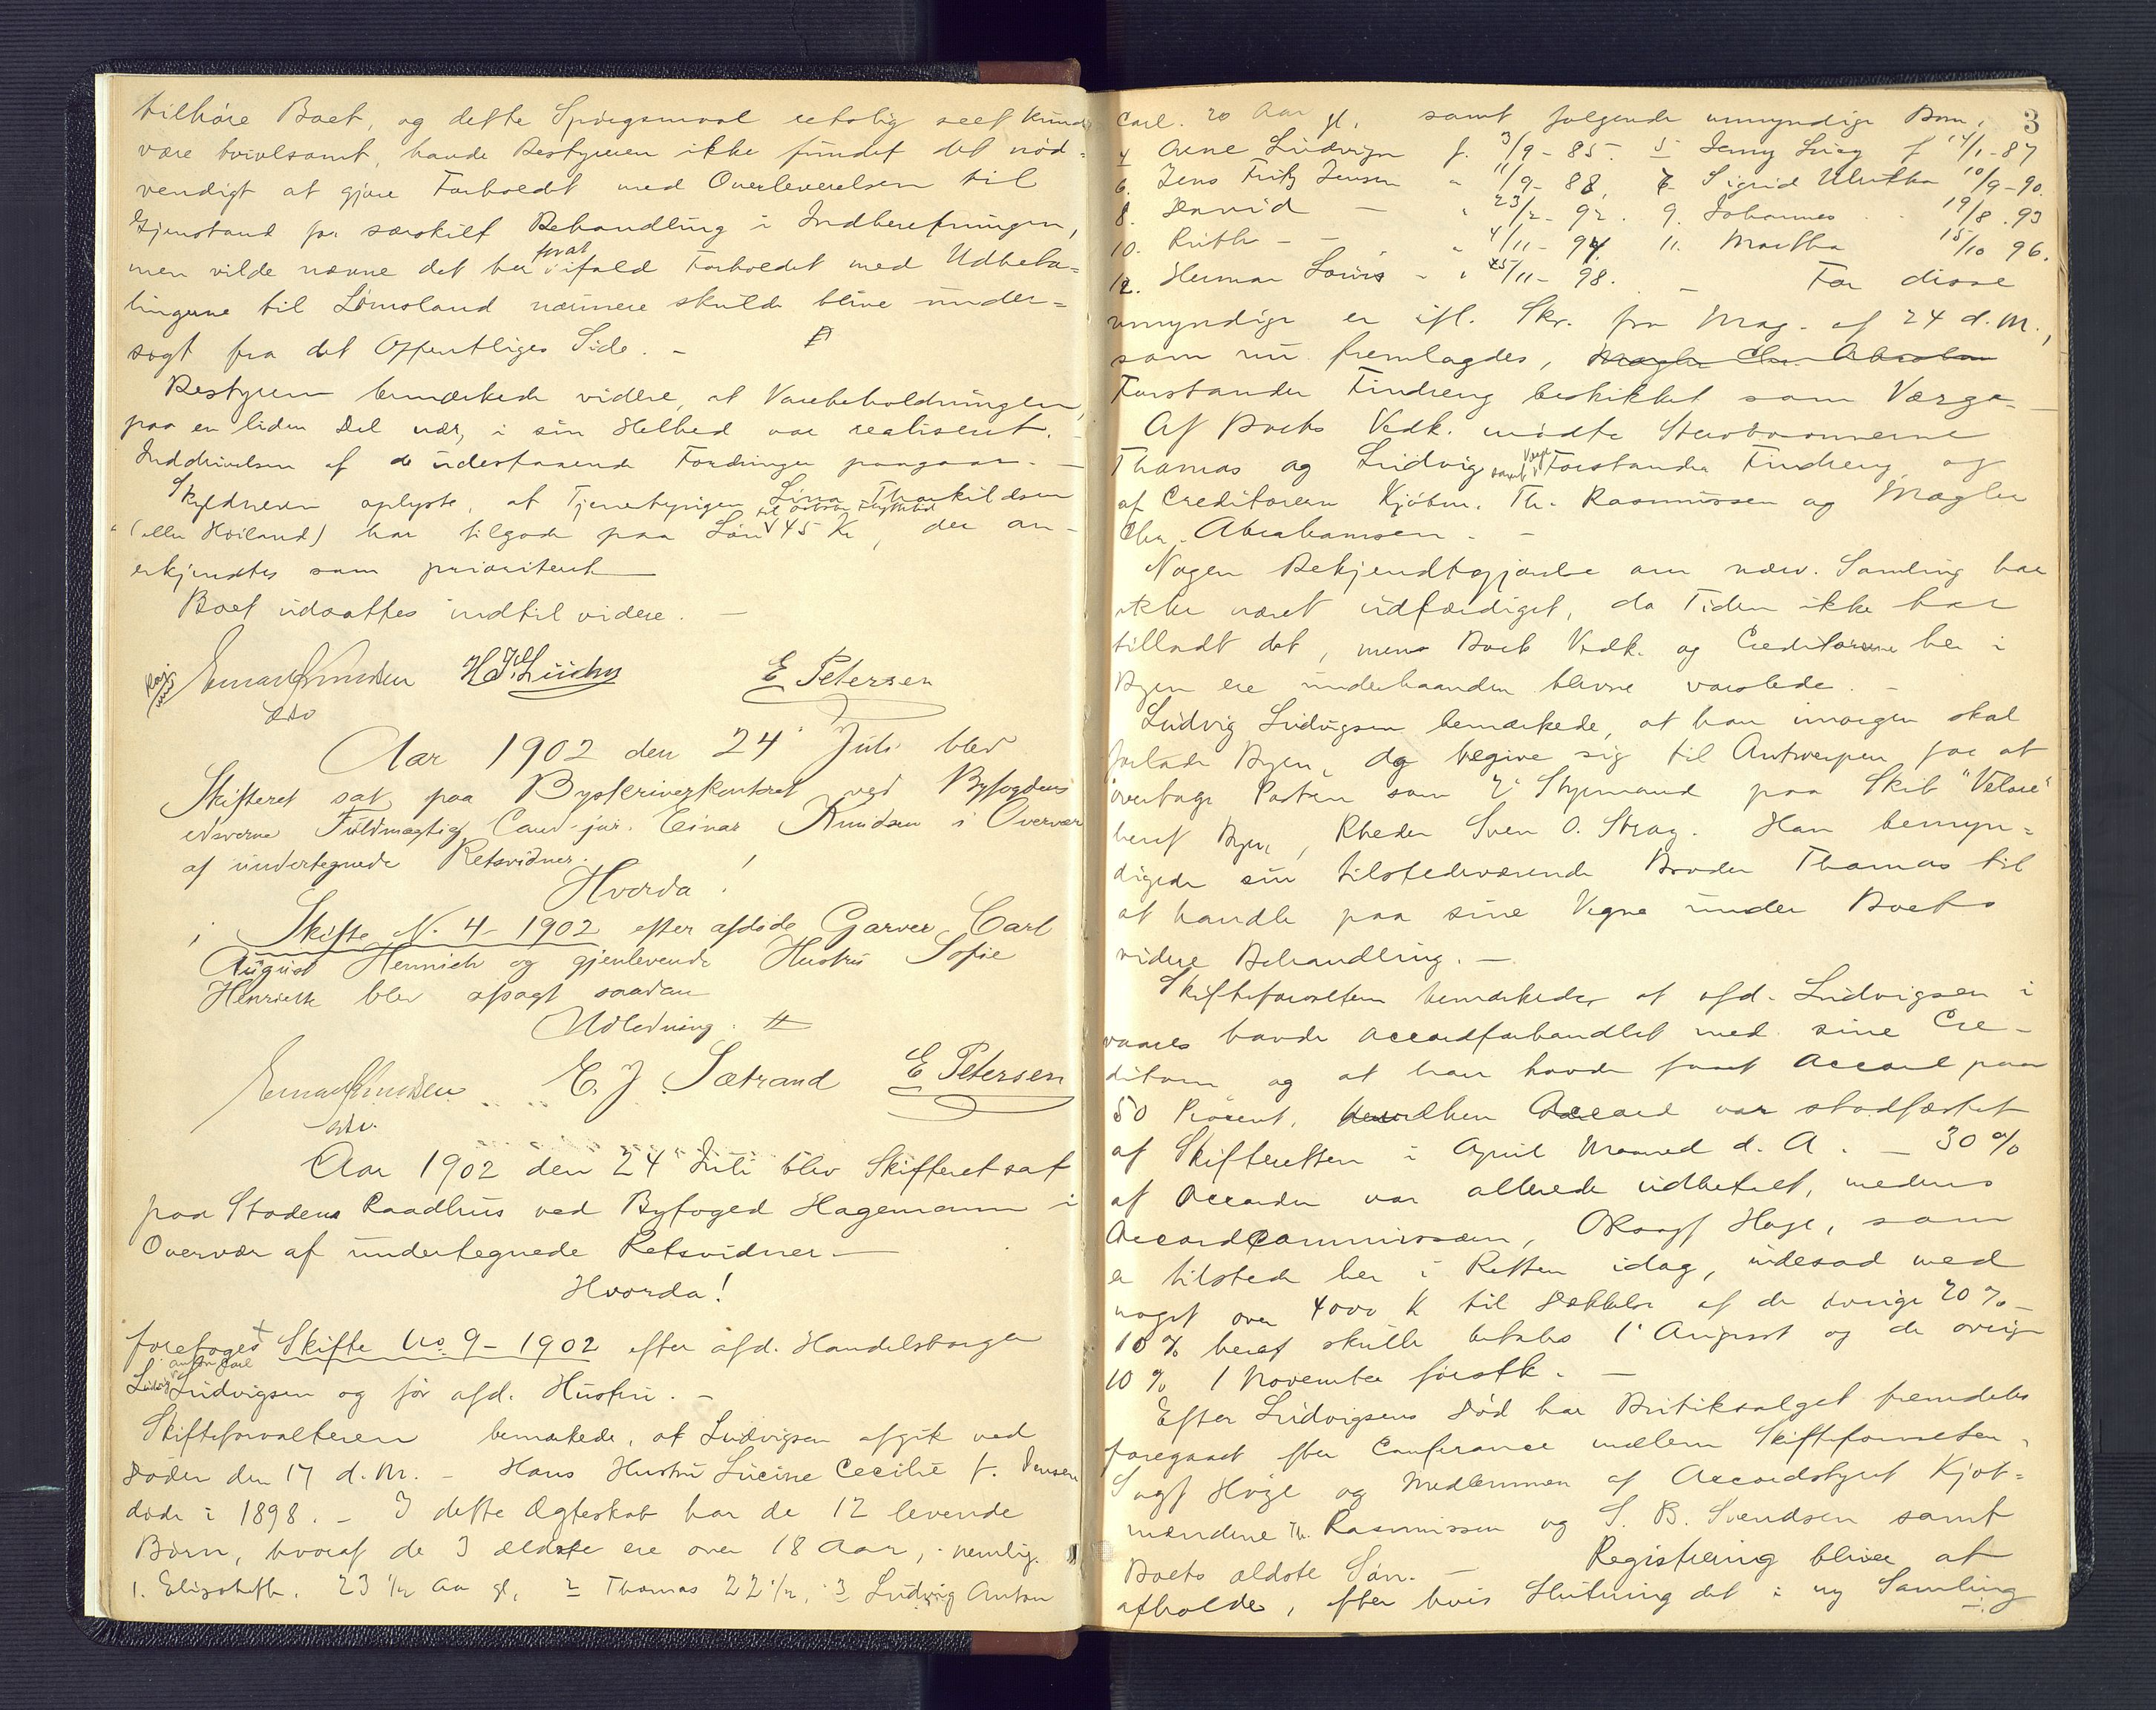 tilhøre Boet, og dette Spørgsmaal retslig seet kunde
være tvivlsomt, havde Bestyreren ikke fundet det nød-
vendigt at gjøre Forholdet med Overleverelsen til
Gjenstand for særskilt Behandling i Indberetningen,
men vilde nævne det her forat ifald Forholdet med Udbeta-
lingerne til Lømsland nærmere skulde blive under-
søgt fra det Offentliges Side. -
Bestyreren bemærkede videre, at Varebeholdningen,
paa en liden Del nær, i sin Helhed var realiseret. -
Inddrivelsen af de udestaaende Fordringer paagaar. -
Skyldneren oplyste, at Tjenestepigen Lina Thorkildsen
(eller Høiland) har tilgode paa Løn til Oktober Flyttetid 45 Kr, der an-
erkjendtes som prioriteret
Boet udsattes indtil videre. -
Einar Knudsen H. J. Lüche E Petersen
edsv
Aar 1902 den 24' Juli blev
Skifteret sat paa Byskriverkontoret ved Byfogdens
edsvorne Fuldmægtig Cand. jur. Einar Knudsen i Overvær
af undertegnede Retsvidner.
Hvorda!
i Skifte N. 4 - 1902 efter afdøde Garver Carl
August Hennich og gjenlevende Hustru Sofie
Henriette blev afsagt saadan
Udledning. #
Einar Knudsen E. J. Sætrand E Petersen
edsv.
Aar 1902 den 24' Juli blev Skifteret sat
paa Stadens Raadhus ved Byfoged Hagemann i
Overvær af undertegnede Retsvidner -
Hvorda!
foretoges Skifte No. 9 - 1902 efter afd. Handelsborger
Ludvig Anton Carl Ludvigsen og før afd. Hustru. -
Skifteforvalteren bemærkede, at Ludvigsen afgik ved
Døden den 17 d. M. - Hans Hustru Lucine Cecilie f. Jensen
døde i 1898. - I dette Ægteskab har de 12 levende
Børn, hvoraf de 3 ældste ere over 18 Aar, nemlig.
1. Elisabeth. 23 1/2 Aar gl, 2 Thomas 22 1/2, 3 Ludvig Anton
3
Carl. 20 Aar gl, samt følgende umyndige Børn,
4 Arne Ludvigsen f. 3/9 - 85. 5 Jenny Lucy f 14/1 - 87
6. Jens Fritz Jensen " 11/9 - 88, 7. Sigrid Ulrikka 10/9 - 90.
8. David - " 23/2 - 92. 9. Johannes 19/8. 93
10. Ruth - - " 4/11 - 94 11. Martha 15/10 96.
12. Herman Louis - " 25/11 - 98. - For disse
umyndige er ifl. Skr. fra Mag. af 24 d. M.,
som nu fremlagdes, Mægler Chr. Abraham
Forstander Findreng beskikket som Værge. -
Af Boets Vedk. mødte Stervbosønnerne
Thomas og Ludvig samt Værge Forstander Findreng og
af Creditorerne Kjøbm. Th. Rasmussen og Mægler
Chr. Abrahamsen. -
Nogen Bekjendtgjørelse om nærv. Samling har
ikke været udfærdiget, da Tiden ikke har
tilladt det, mens Boets Vedk. og Creditorerne her i
Byen ere underhaanden blevne varslede. -
Ludvig Ludvigsen bemærkede, at han imorgen skal
forlade Byen, og begive sig til Antwerpen for at
overtage Posten som 2' Styrmand paa Skib "Velore"
heraf Byen, Rheder Sven O. Stray. Han bemyn-
digede sin tilstedeværende Broder Thomas til
at handle paa sine Vegne under Boets
videre Behandling. -
Skifteforvalteren bemærkede, at afd. Ludvigsen i
vaares havde accordforhandlet med sine Cre-
ditorer og at han havde faaet Accord paa
50 Procent, hvilken Accord var stadfæstet
af Skifteretten i April Maaned d. A. - 30 %
af Accorden var allerede udbetalt, medens
Accordcommissæren, ORsagf Høge, som
er tilstede her i Retten idag, indesad med
noget over 4000 K til Dækkelse af de øvrige 20 % -
10 % heraf skulle betales 1' August og de øvrige
10 % 1 November førstk. -
Efter Ludvigsens Død har Butiksalget fremdeles
foregaaet efter Conferance mellem Skifteforvalteren,
Sagf Høge og Medlemmer af Accordstyret Kjøb-
mændene Th. Rasmussen og S. B. Svendsen samt
Boets ældste Søn. - Registrering bliver at
afholde, efter hvis Slutning det i ny Samling